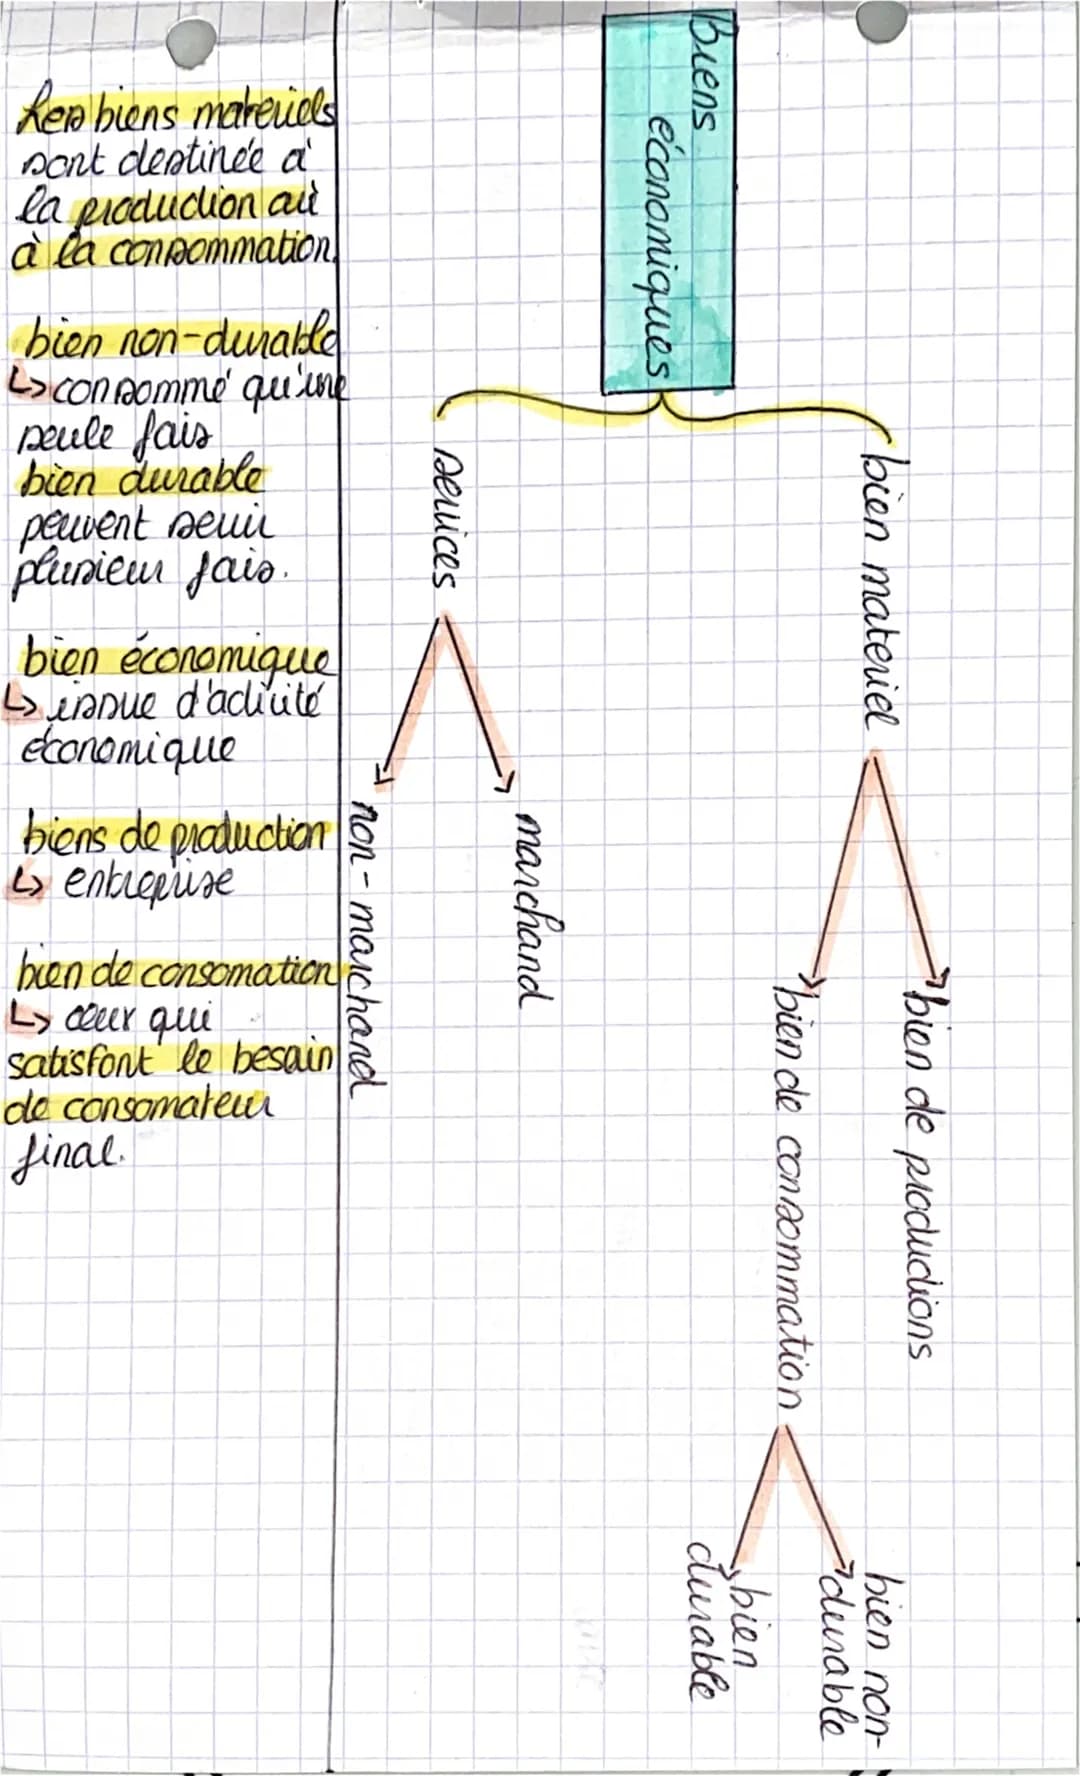 Les biens materiels
sont destinée à
la production où
à la consommation.
bien non-durable
↳ consommé qu'une
seule fois
bien durable
peuvent servir
plusieur fois.
bien économique
↳ issue d'activité
économique
biens de production
↳ entreprise
bien de consomation
↳ ceux qui
satisfont le besoin
de consomateur
final.
biens
économiques
bien materiel
bien de productions
bien de consommation
bien non-
durable
bien
durable
services
marchand
non-marchand